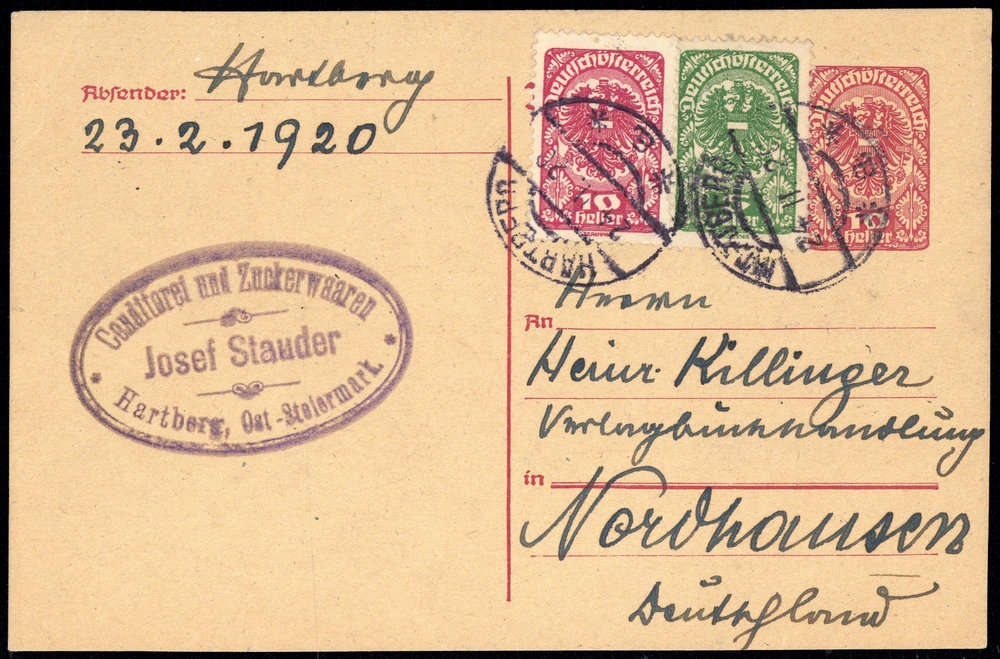 Absender: Hartberg
23.2.1920
Conditorei und Zuckerwaaren
Josef Stauder
Hartberg, Ost-Steiermark.
Deutschösterreich
10
Heller
Deutschösterreich
Deutschösterreich
10
Heller
HARTBERG
HARTBERG
An Herrn
Heinr. Killinger
Verlagbuchhandlung
in Nordhausen
Deutschland